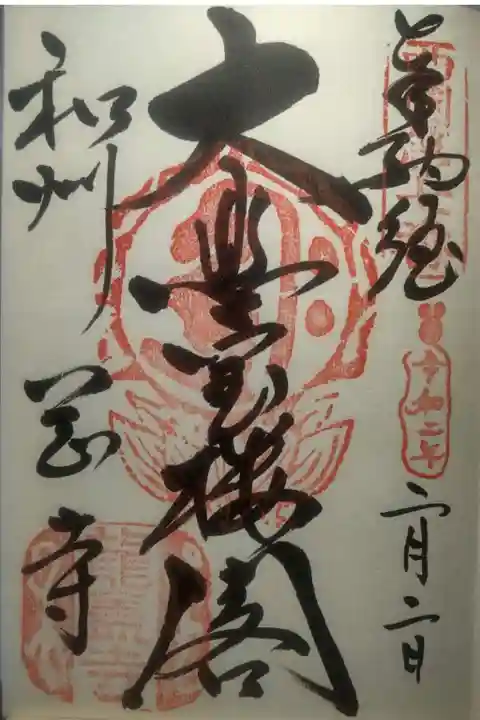 奉納経
令和二年
二月二日
大悲宝楼閣
和州 岡寺